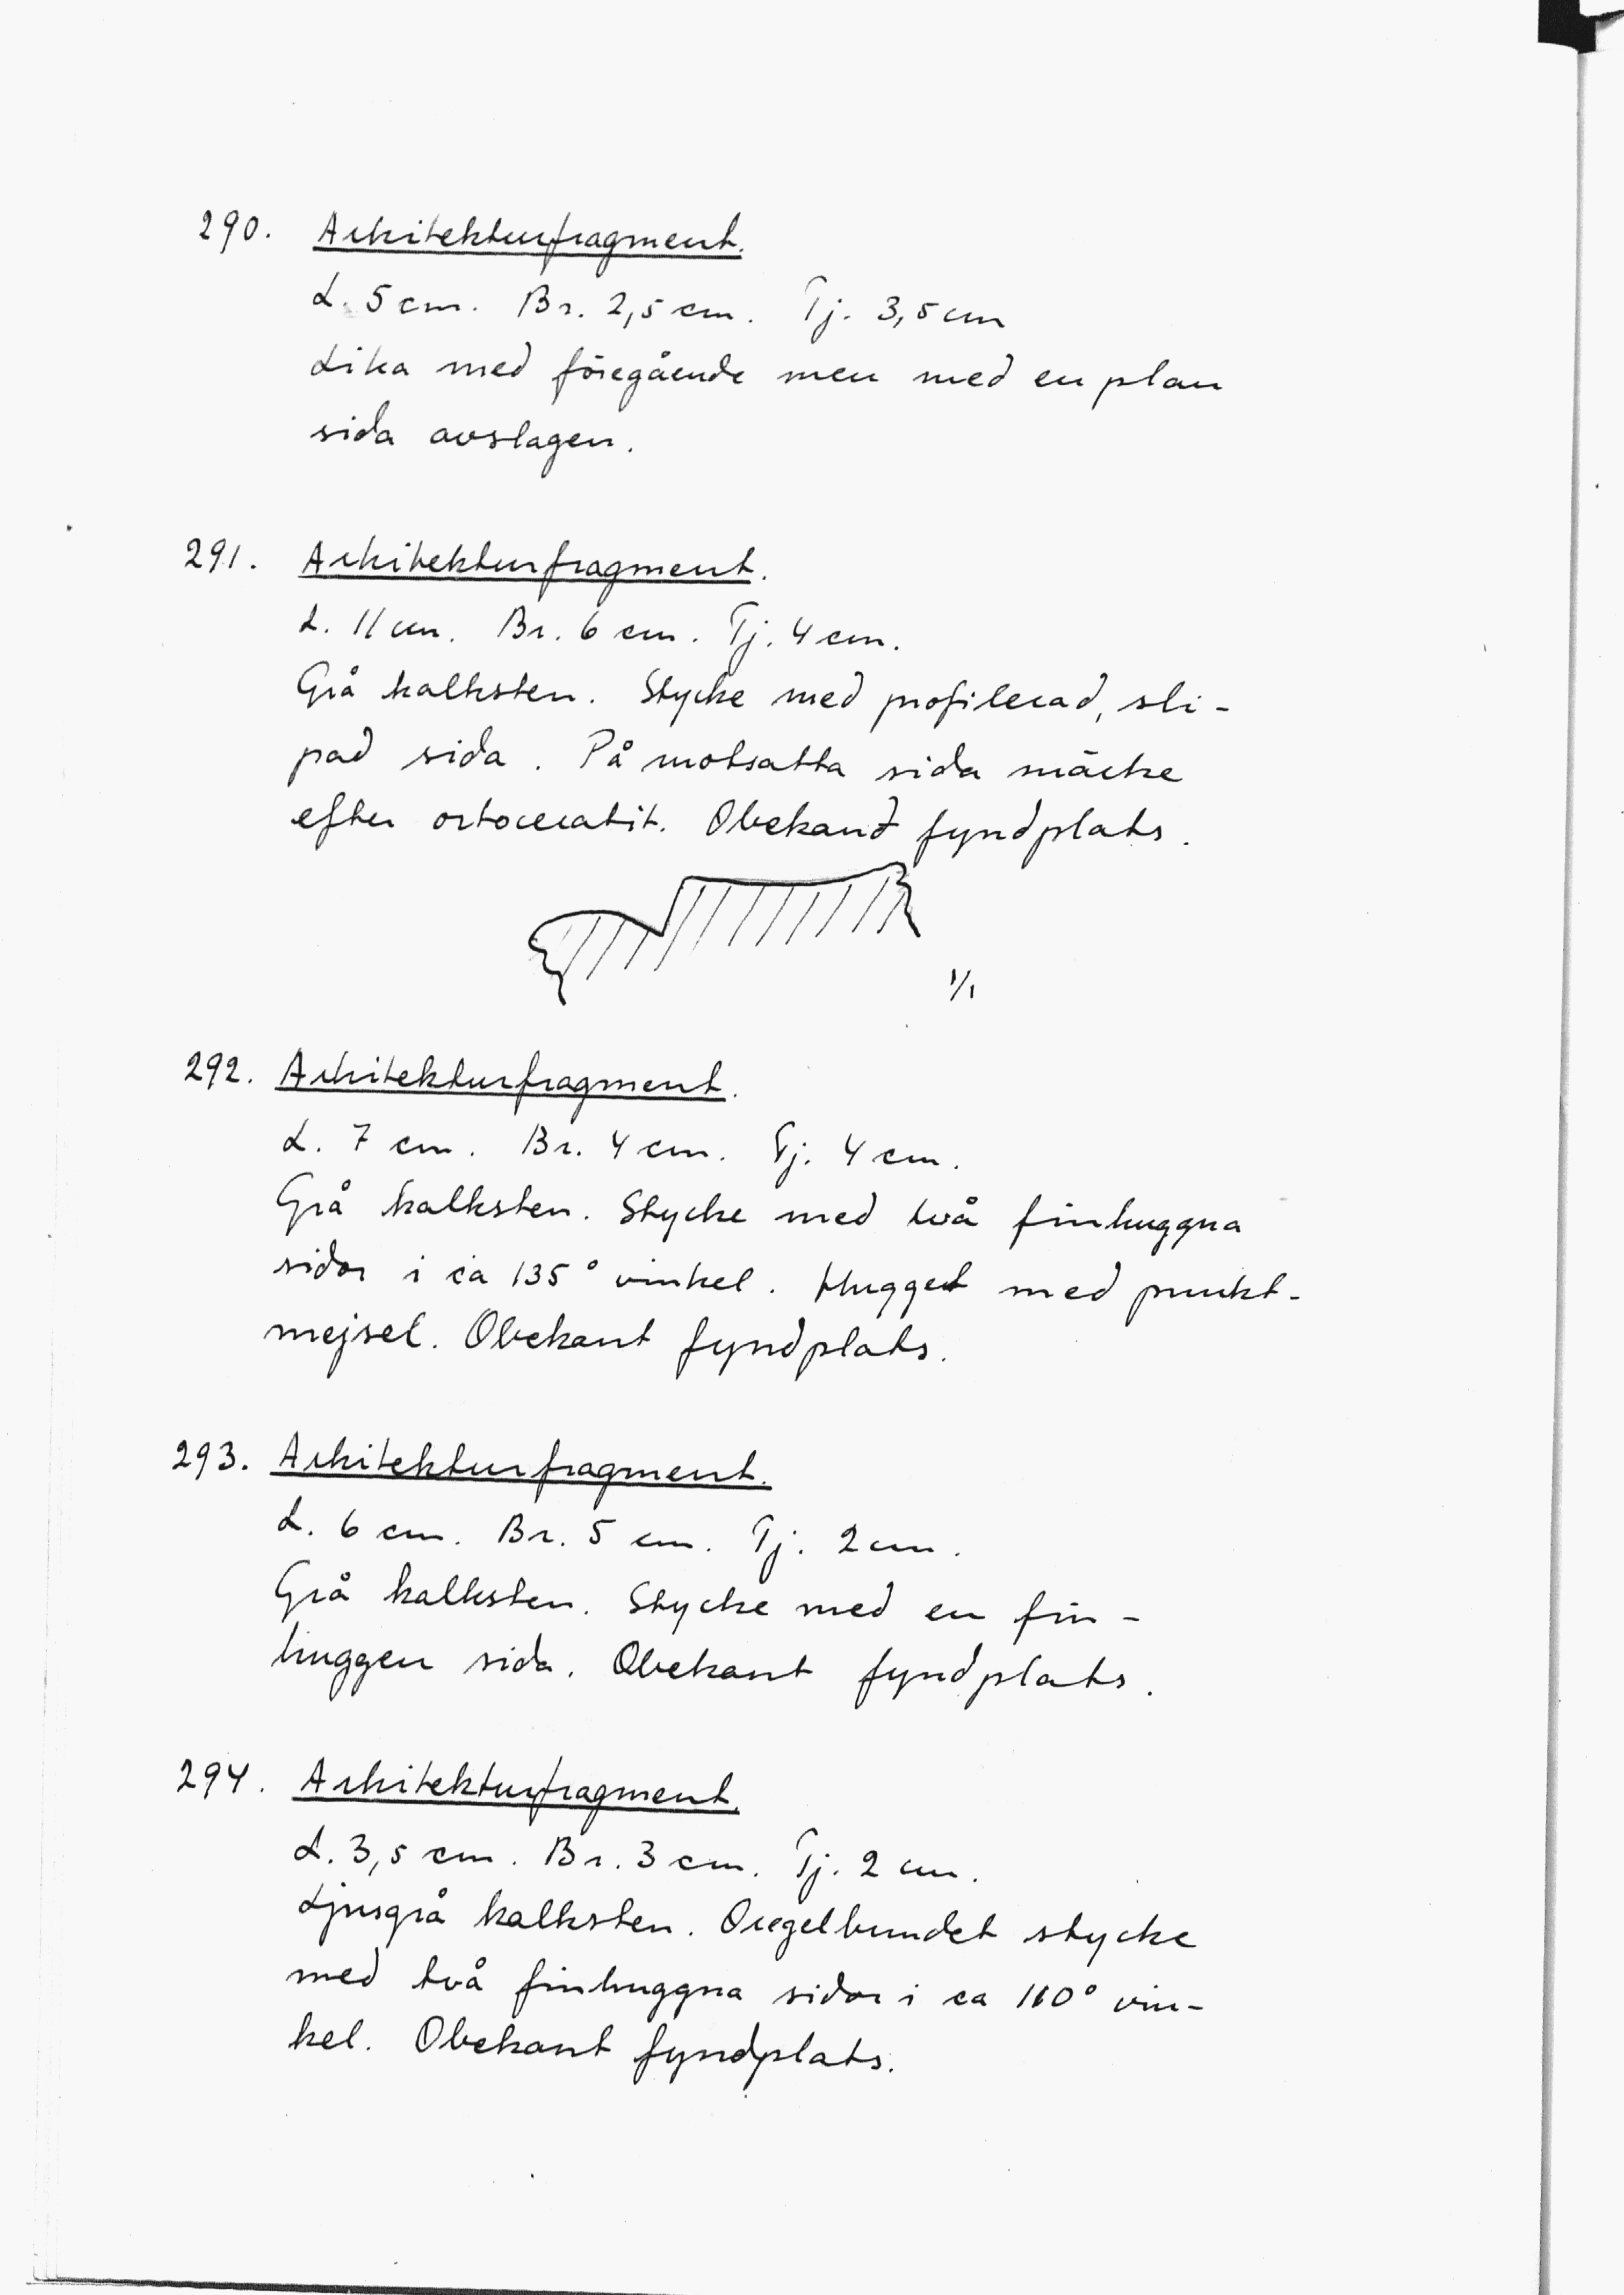 290. Arkitekturfragment.
L. 5 cm. Br. 2,5 cm. Tj. 3,5 cm
Lika med föregående men med en plan
sida avslagen.
291. Arkitekturfragment.
L. 11 cm. Br. 6 cm. Tj. 4 cm.
Grå kalksten. Stycke med profilerad, sli-
pad sida. På motsatta sida märke
efter ortoceratit. Obekand fyndplats.
1/1
292. Arkitekturfragment.
L. 7 cm. Br. 4 cm. Tj. 4 cm.
Grå kalksten. Stycke med två finhuggna
sidor i ca 135° vinkel. Hugget med punkt-
mejsel. Obekant fyndplats.
293. Arkitekturfragment.
L. 6 cm. Br. 5 cm. Tj. 2 cm.
Grå kalksten. Stycke med en fin-
huggen sida. Obekant fyndplats.
294. Arkitekturfragment.
L. 3,5 cm. Br. 3 cm. Tj. 2 cm.
Ljusgrå kalksten. Oregelbundet stycke
med två finhuggna sidor i ca 110° vin-
kel. Obekant fyndplats.